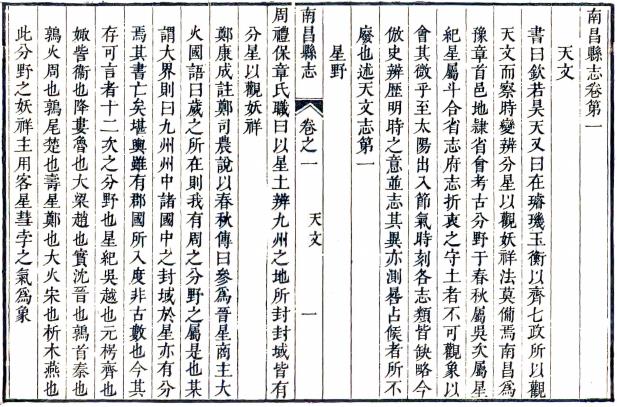 南昌縣志卷第一
天文
書曰欽若昊天又曰在璿璣玉衡以齊七政所以觀
天文而察時變辨分星以觀妖祥法莫備焉南昌為
豫章首邑地隸省會考古分野于春秋屬吳次屬星
紀星屬斗合省志府志折衷之守土者不可觀象以
會其微乎至太陽出入節氣時刻各志類皆缺略今
倣史辨歷明時之意並志其異亦測晷占候者所不
廢也述天文志第一
星野
南昌縣志
卷之一
天文
一
周禮保章氏職曰以星土辨九州之地所封封域皆有
分星以觀妖祥
鄭康成註鄭司農說以春秋傳曰參為晉星商主大
火國語曰歲之所在則我有周之分野之屬是也某
謂大界則曰九州州中諸國中之封域於星亦有分
焉其書亡矣堪輿雖有郡國所入度非古數也今其
存可言者十二次之分野也星紀吳越也元枵齊也
娵訾衞也降婁魯也大梁趙也實沈晉也鶉首秦也
鶉火周也鶉尾楚也壽星鄭也大火宋也析木燕也
此分野之妖祥主用客星彗孛之氣為象